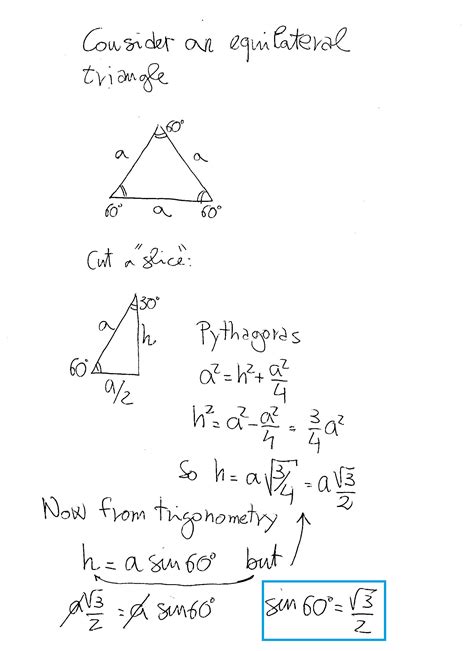 Consider an equilateral
triangle
60°
a
a
60°
a
60°
Cut a "slice":
30°
a
h
60°
a/2
Pythagoras
a² = h² + a²/4
h² = a² - a²/4 = 3/4 a²
So h = a√3/4 = a√3/2
Now from trigonometry
h = a sin 60° but
a√3/2 = a sin 60°
sin 60° = √3/2